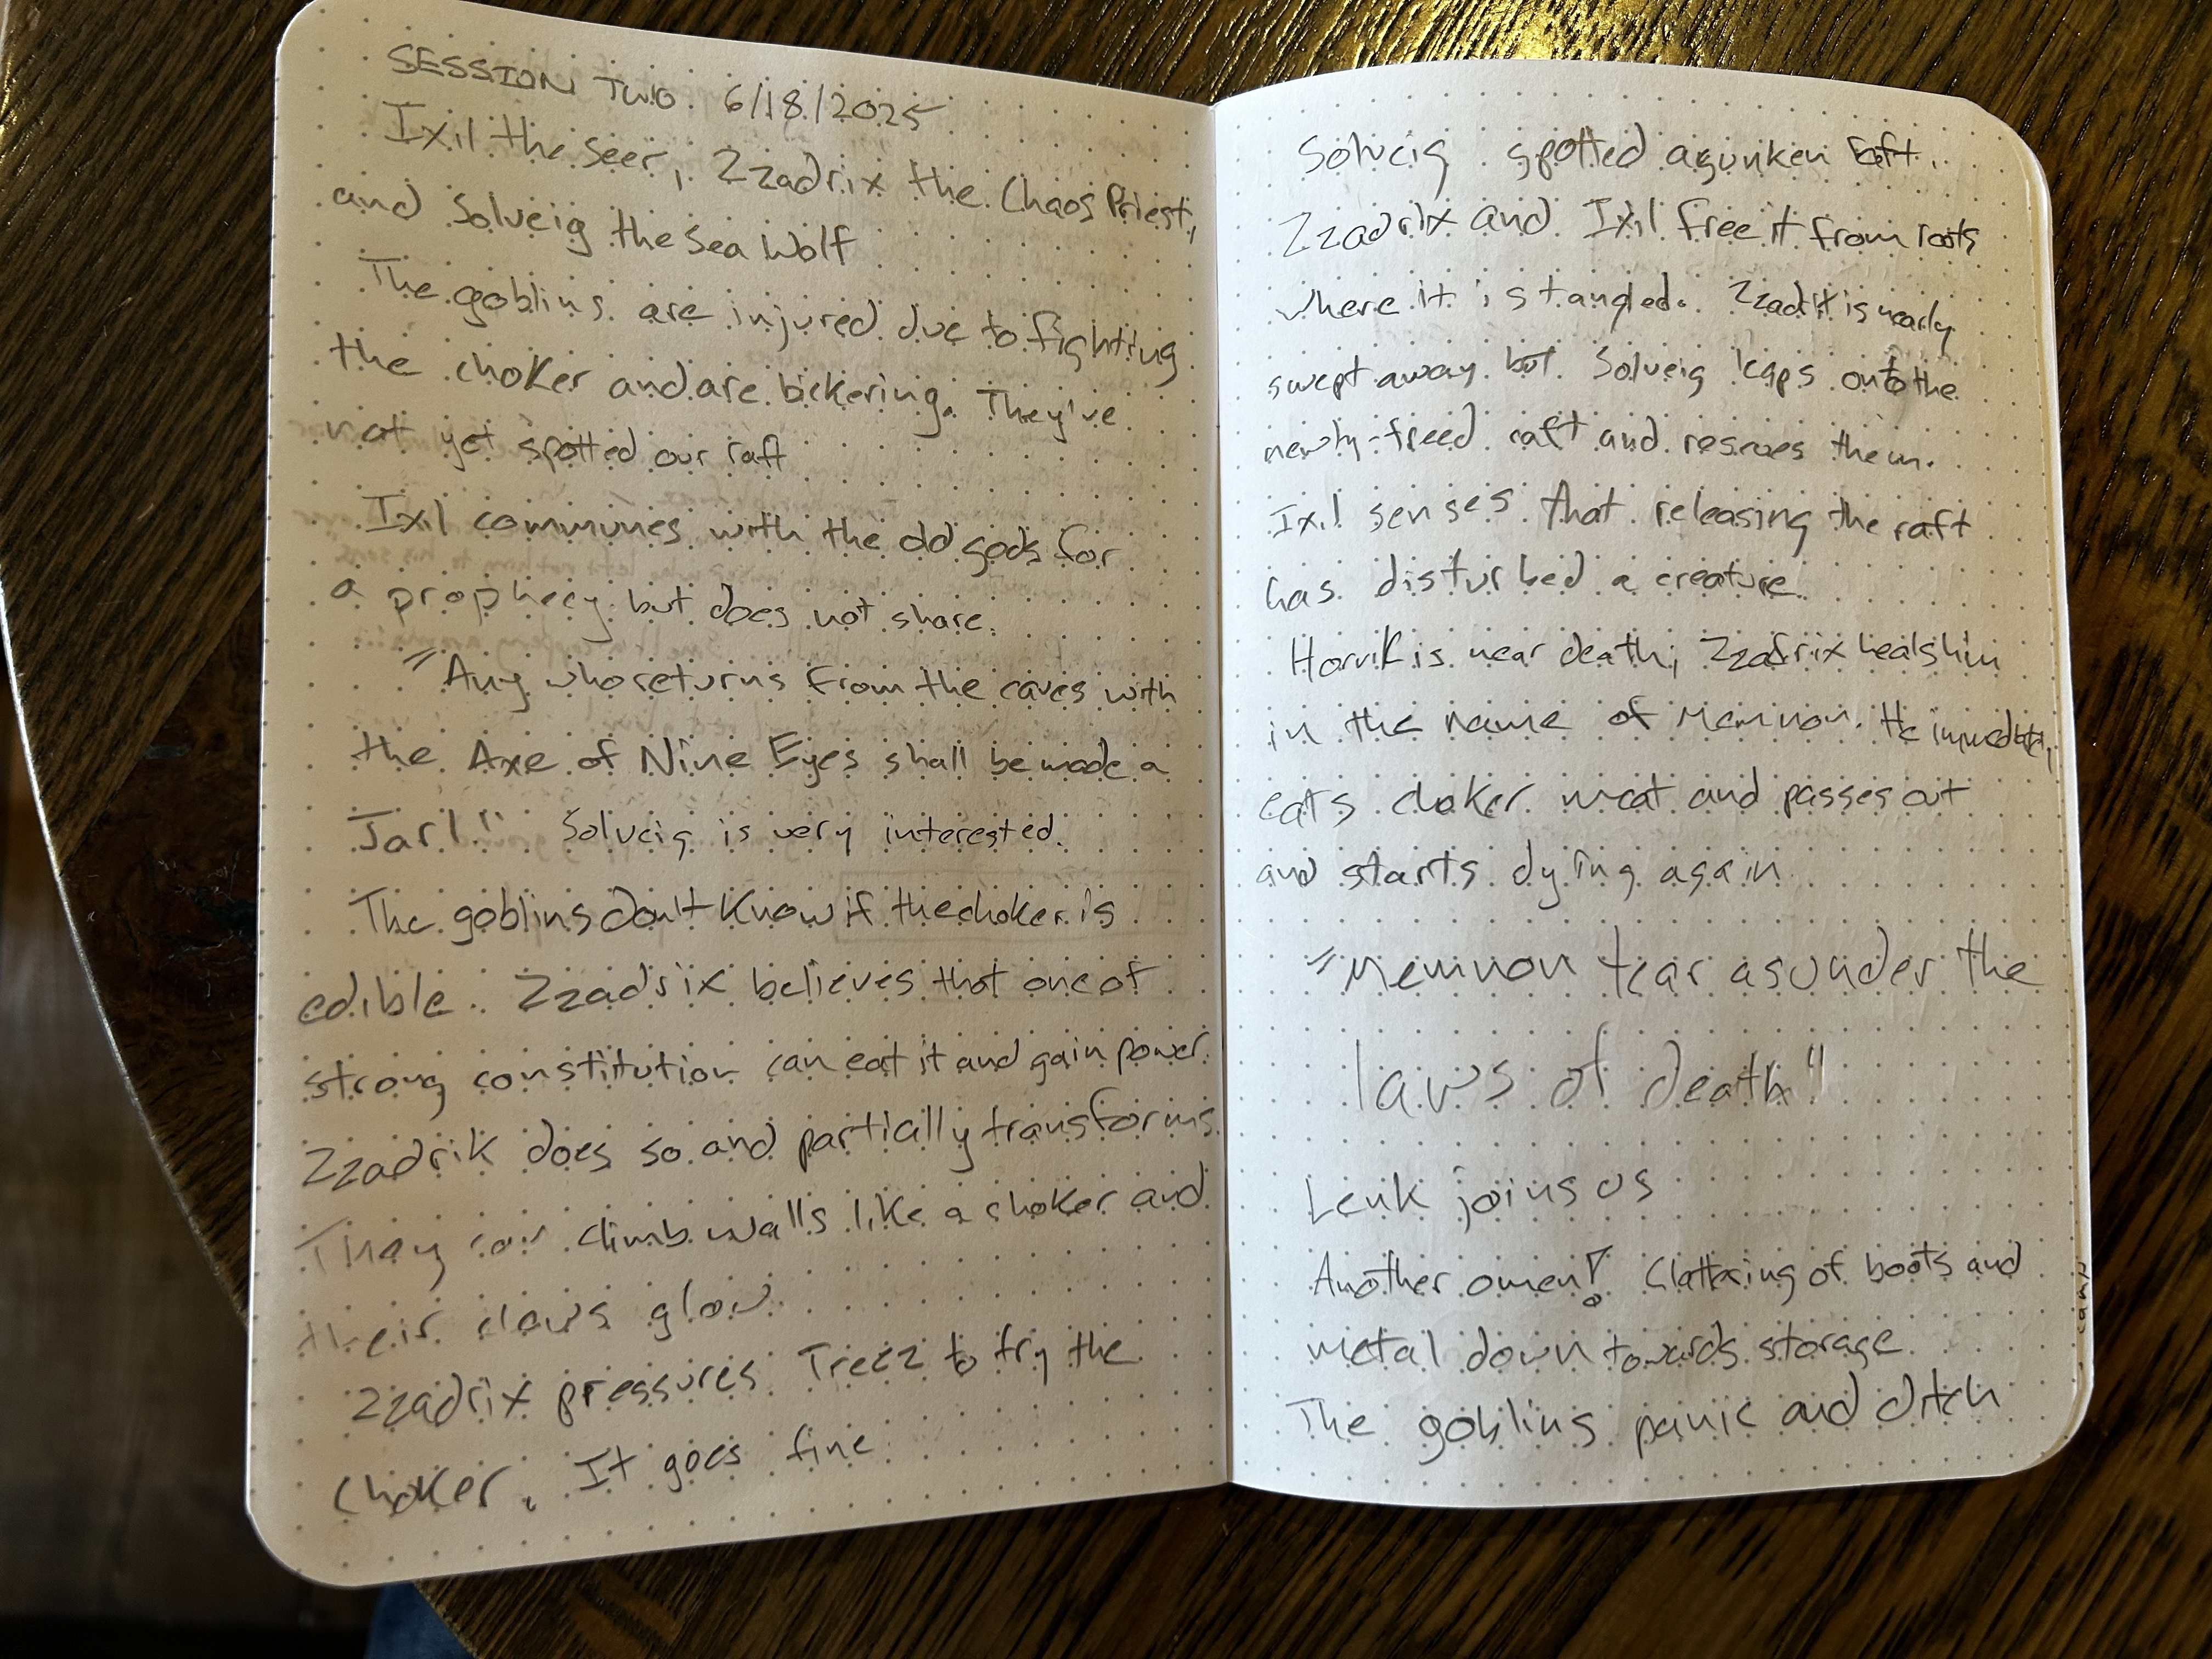 SESSION TWO. 6/18/2025
Ixil the seer, Zzadrix the Chaos Priest,
and Solveig the Sea Wolf
The goblins are injured due to fighting
the choker and are bickering. They've
not yet spotted our raft
Ixil communes with the old gods for
a prophecy but does not share.
"Any who returns from the caves with
the Axe of Nine Eyes shall be made a
Jarl" Solveig is very interested.
The goblins don't know if the choker is
edible. Zzadrix believes that one of
strong constitution can eat it and gain power.
Zzadrik does so and partially transforms.
They can climb walls like a choker and
their claws glow
Zzadrix pressures Treez to try the
choker. It goes fine
Solveig spotted a sunken raft.
Zzadrix and Ixil free it from roots
where it is tangled. Zzadrix is nearly
swept away but Solveig leaps onto the
newly-freed raft and rescues them.
Ixil senses that releasing the raft
has disturbed a creature
Horvik is near death; Zzadrix heals him
in the name of Memnon. He immediately
eats choker meat and passes out
and starts dying again
"Memnon tear asunder the
laws of death"
Lenk joins us
Another omen! Clattering of boots and
metal down towards storage
The goblins panic and ditch
camp